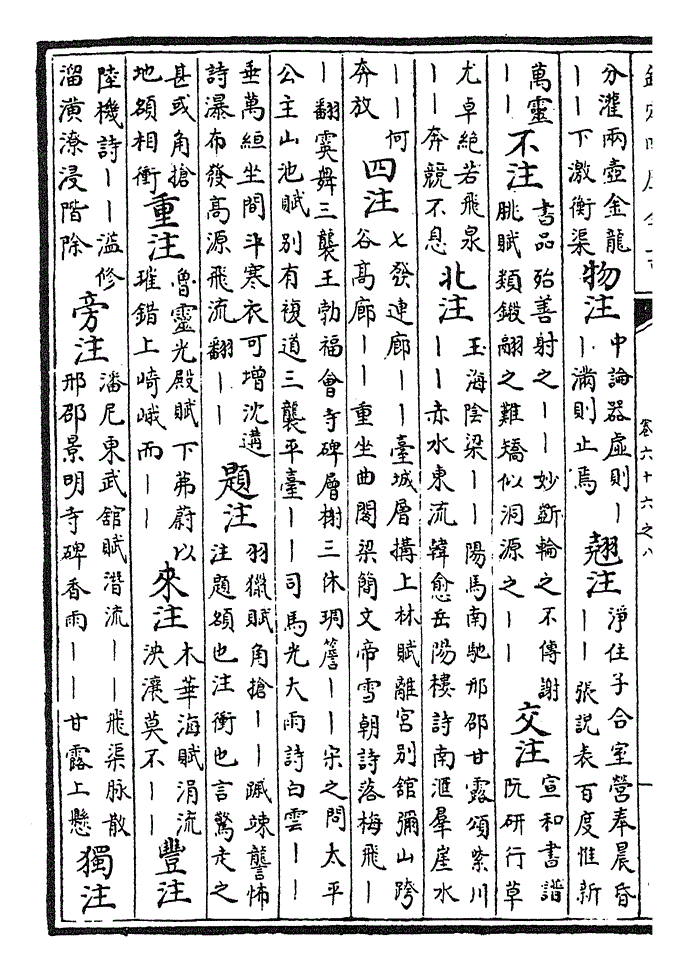 卷六十六之八
分灌兩壺金龍
——下激衡渠
物注
中論器虛則—
—滿則止焉
翹注
淨住子合室營奉晨昏
——張說表百度惟新
萬靈
——
不注
書品殆善射之——妙斵輪之不傳謝
朓賦類鍛翮之難矯似洞源之——
交注
宣和書譜
阮研行草
尤卓絕若飛泉
——奔競不息
北注
玉海陰梁——陽馬南馳邢邵甘露頌紫川
——赤水東流韓愈岳陽樓詩南滙羣崖水
——何
奔放
四注
七發連廊——臺城層搆上林賦離宮別舘彌山跨
谷高廊——重坐曲閣梁簡文帝雪朝詩落梅飛—
—翻霙舞三襲王勃福會寺碑層榭三休琱簷——宋之問太平
公主山池賦別有複道三襲平臺——司馬光大雨詩白雲——
垂萬絙坐間斗寒衣可增沈遘
詩瀑布發高源飛流翻——
題注
羽獵賦角搶——蹴竦讋怖
注題頟也注衝也言驚走之
甚或角搶
地頟相衝
重注
魯靈光殿賦下茀蔚以
璀錯上崎嶬而——
來注
木華海賦涓流
泱瀼莫不——
豐注
陸機詩——溢修
溜潢潦浸階除
旁注
潘尼東武舘賦潛流——飛渠脉散
邢邵景明寺碑香雨——甘露上懸
獨注